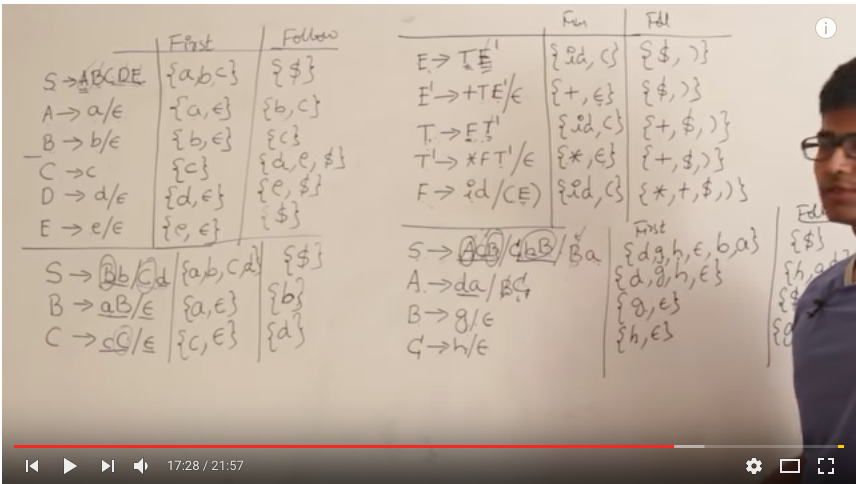 First Follow
S→ABCDE {a,b,c} {$}
A→a/ε {a,ε} {b,c}
B→b/ε {b,ε} {c}
C→c {c} {d,e,$}
D→d/ε {d,ε} {e,$}
E→e/ε {e,ε} {$}
S→Bb/Cd {a,b,c,d} {$}
B→aB/ε {a,ε} {b}
C→cC/ε {c,ε} {d}
E→TE' {id,(} {$,)}
E'→+TE'/ε {+,ε} {$,)}
T→FT' {id,(} {+,$,)}
T'→*FT'/ε {*,ε} {+,$,)}
F→id/(E) {id,(} {*,+,$,)}
First
S→ACB/CbB/Ba {d,g,h,ε,b,a} {$}
A→da/BC {d,g,h,ε}
B→g/ε {g,ε}
C→h/ε {h,ε}
17:28 / 21:57